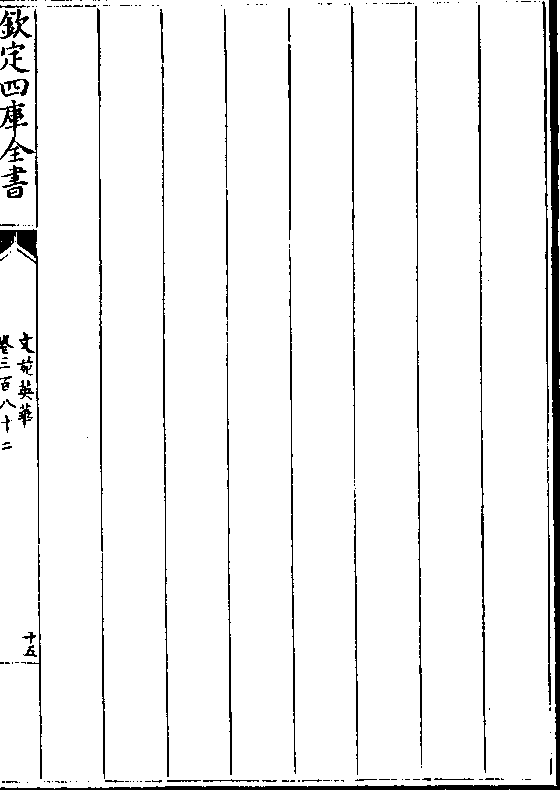 欽定四庫全書
文苑英華
卷三百八十二
十五